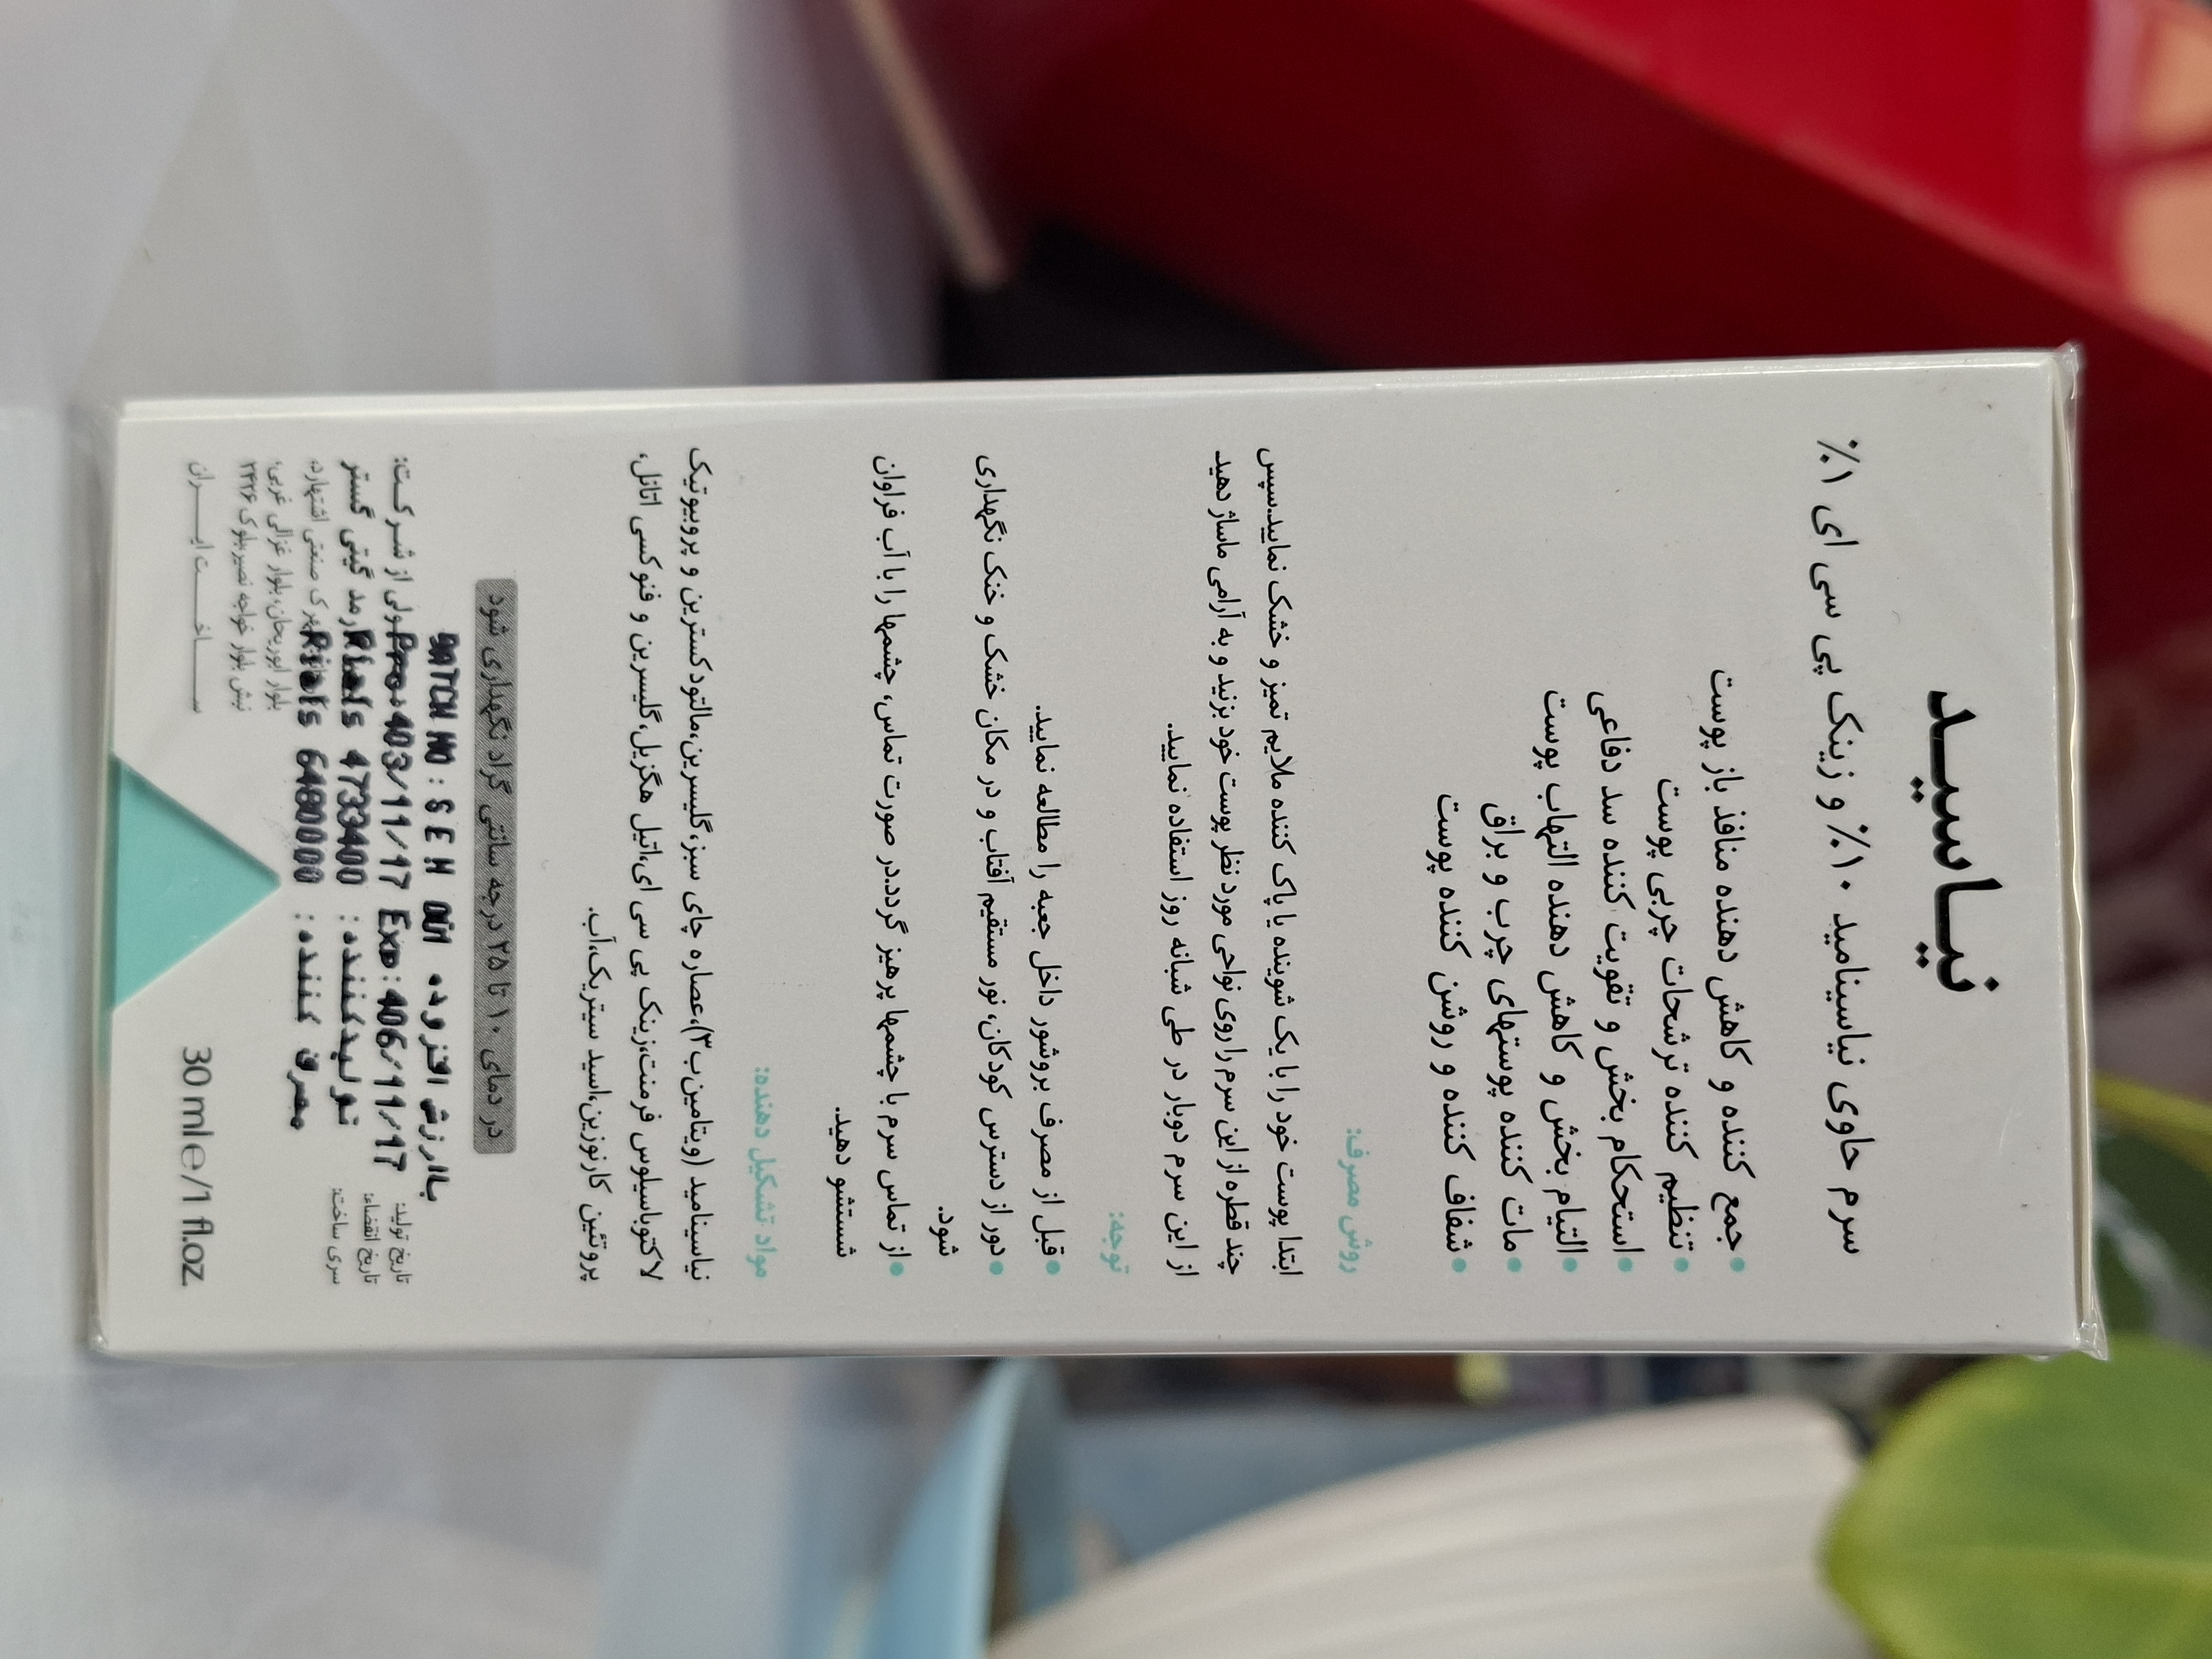 نیاسید
سرم حاوی نیاسینامید ۱۰٪ و زینک پی سی ای ۱٪
• جمع کننده و کاهش دهنده منافذ باز پوست
• تنظیم کننده ترشحات چربی پوست
• استحکام بخش و تقویت کننده سد دفاعی
• التیام بخش و کاهش دهنده التهاب پوست
• مات کننده پوستهای چرب و براق
• شفاف کننده و روشن کننده پوست
روش مصرف:
ابتدا پوست خود را با یک شوینده یا پاک کننده ملایم تمیز و خشک نمایید.سپس
چند قطره از این سرم را روی نواحی مورد نظر پوست خود بزنید و به آرامی ماساژ دهید
از این سرم دوبار در طی شبانه روز استفاده نمایید.
توجه:
• قبل از مصرف بروشور داخل جعبه را مطالعه نمایید.
• دور از دسترس کودکان، نور مستقیم آفتاب و در مکان خشک و خنک نگهداری
شود.
• از تماس سرم با چشمها پرهیز گردد.در صورت تماس، چشمها را با آب فراوان
شستشو دهید.
مواد تشکیل دهنده:
نیاسینامید (ویتامین ب۳)،عصاره چای سبز،گلیسرین،مالتودکسترین و پروبیوتیک
لاکتوباسیلوس فرمنت،زینک پی سی ای،اتیل هگزیل،گلیسرین و فنوکسی اتانل،
پروتئین کارنوزین،اسید سیتریک،آب.
در دمای ۱۰ تا ۲۵ درجه سانتی گراد نگهداری شود
BATCH NO: SEH
باارزش افزوده
تاریخ تولید:
403/11/17 Exp:406/11/17
ولی از شرکت:
تاریخ انقضاء:
Rials 4733400 : تولیدکننده
رمد گیتی گستر
سری ساخت:
Rials 6480000 : مصرف کننده
ک صنعتی اشتهارد،
بلوار ابوریحان،بلوار غزالی غربی،
نبش بلوار خواجه نصیر،بلوک ۲۴۲۶
ساخت ایران
30 ml e/1 fl.oz